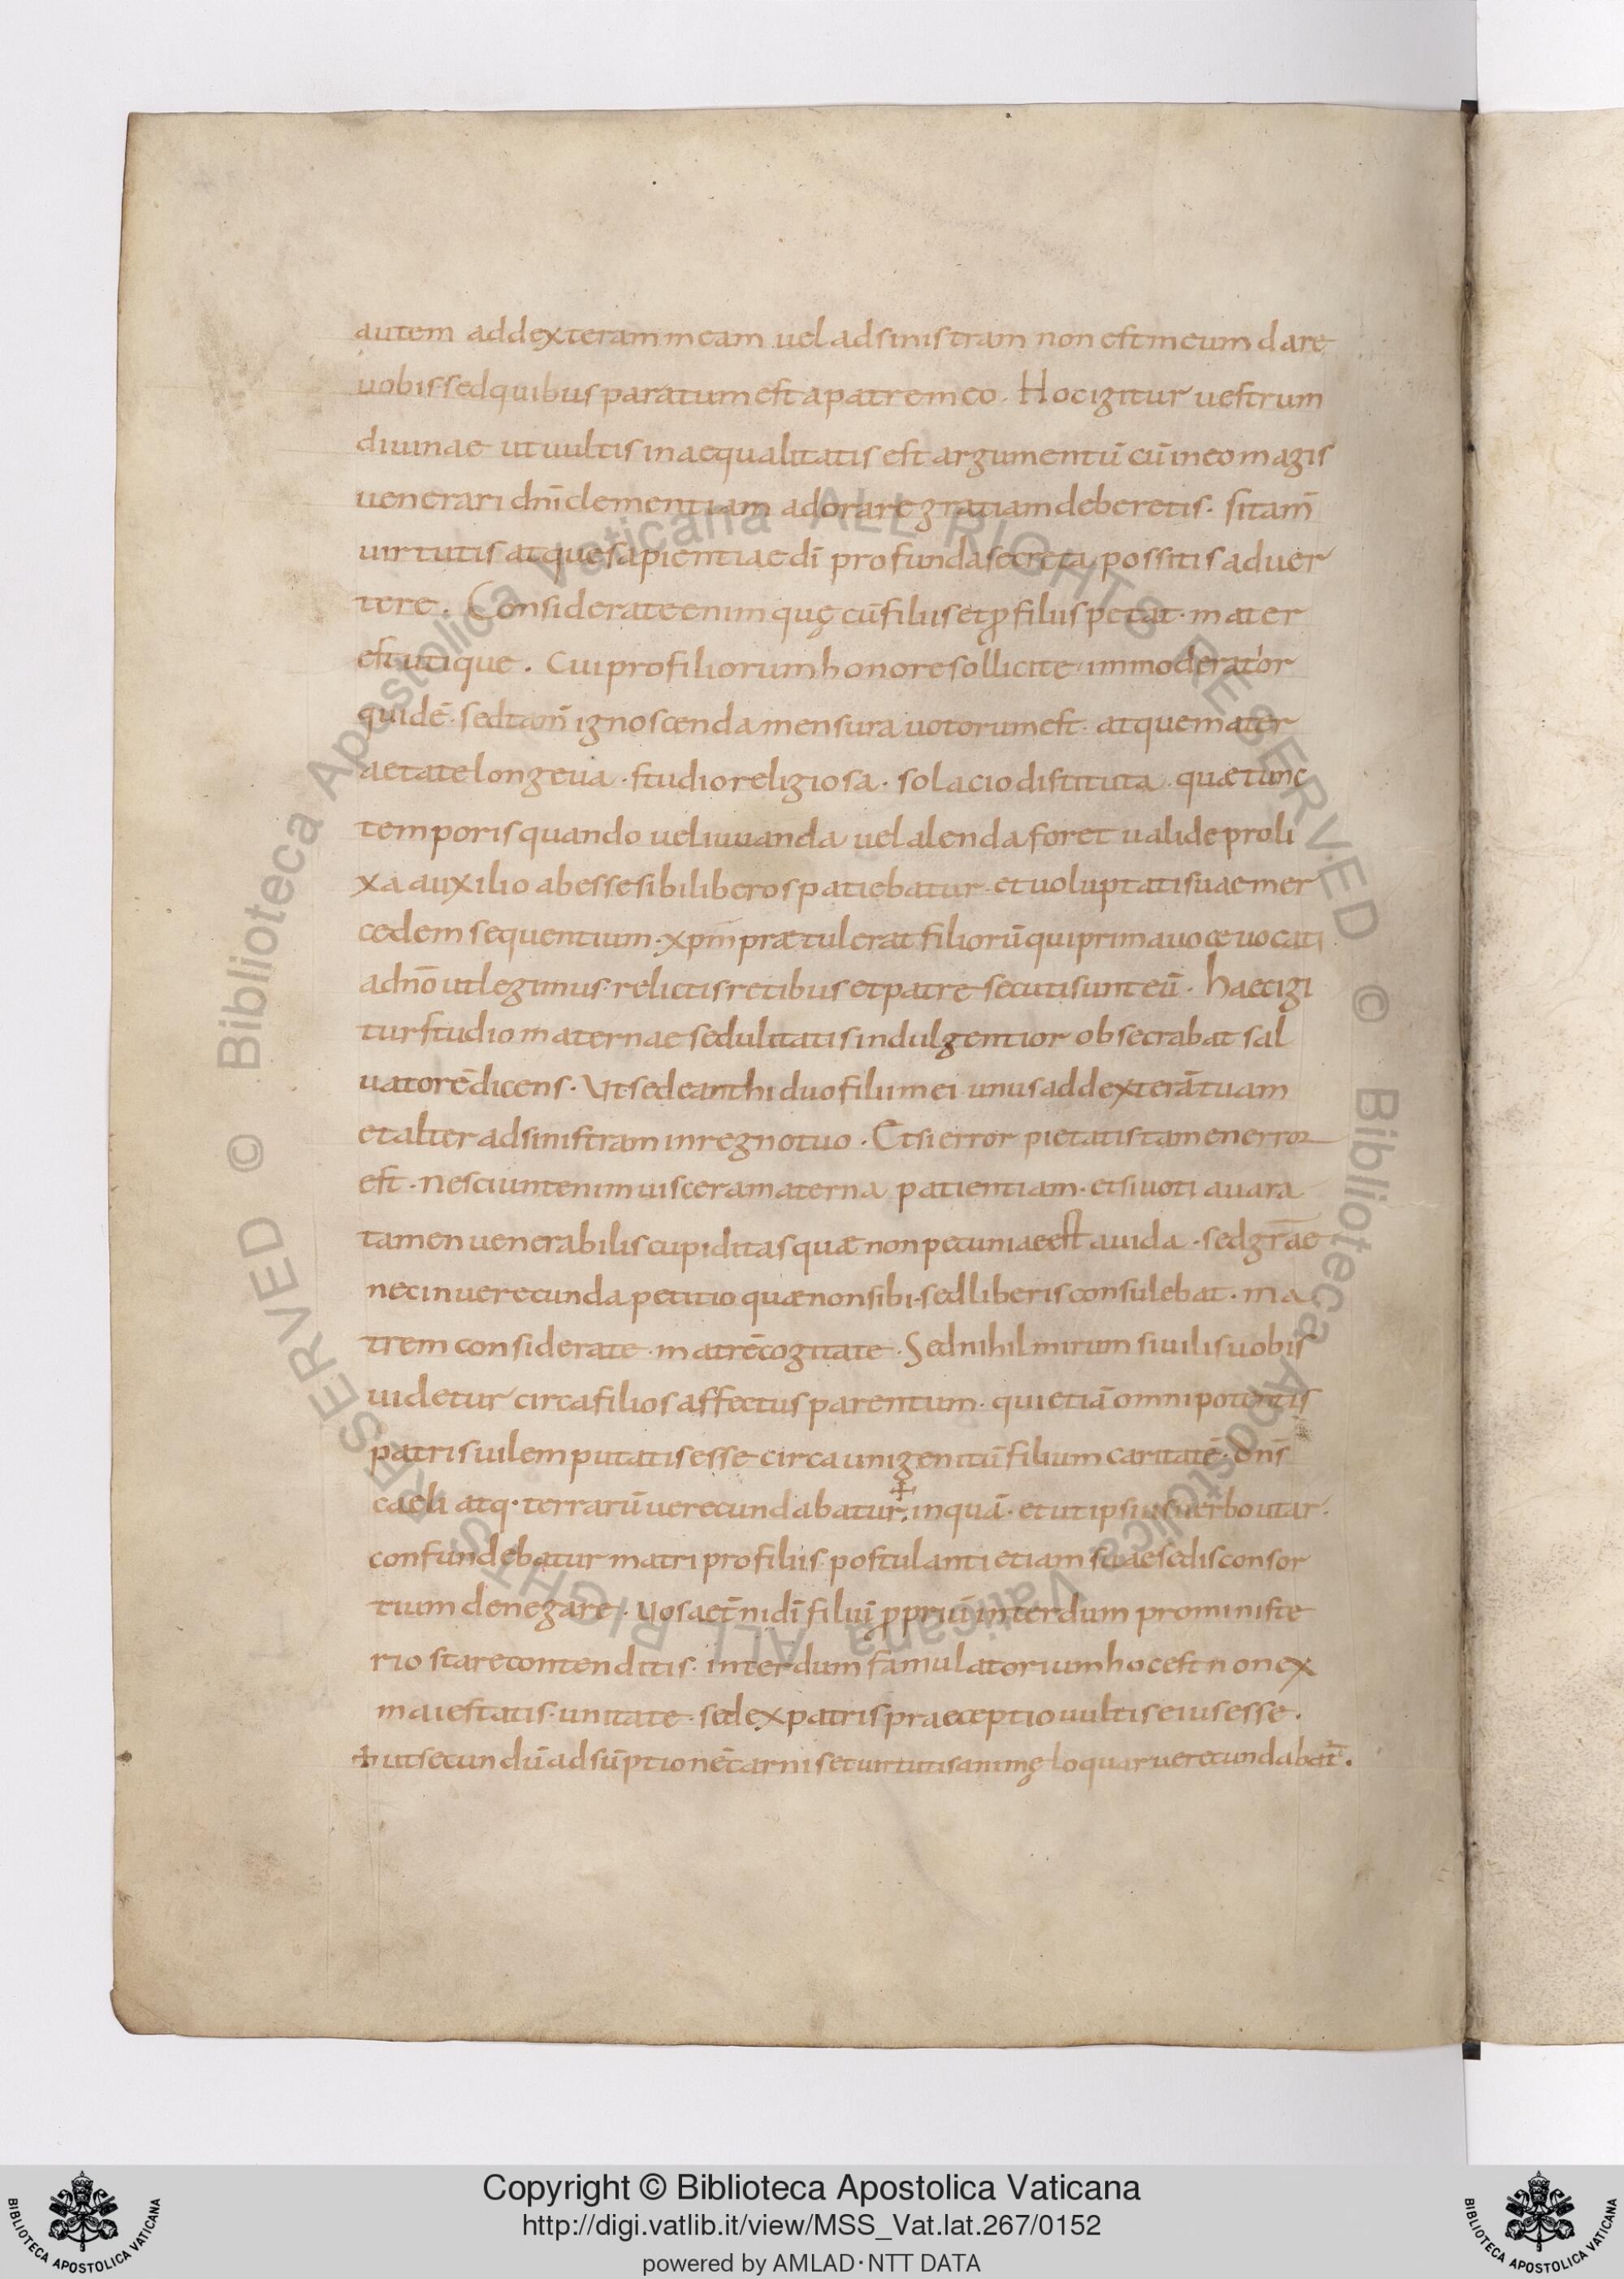 autem ad dexteram meam vel ad sinistram non est meum dare
uobis sed quibus paratum est a patre meo. Hoc igitur uestrum
diuinae ut uultis inaequalitatis est argumentū cū in eo magis
uenerari dnī clementiam adorare gratiam deberetis. si tam̄
uirtutis atque sapientiae dī profunda secreta possitis aduer
tere. Considerate enim quę cū filiis et ꝓ filiis petat. mater
est utique. Cui pro filiorum honore sollicite immoderatior
quidē. sed tam̄ ignoscenda mensura uotorum est. atque mater
aetate longeua. studio religiosa. solacio distituta. quae tunc
temporis quando uel iuuanda uel alenda foret ualide proli
xa auxilio abesse sibi liberos patiebatur. et uoluptati suae mer
cedem sequentium. xpm̄ praetulerat filiorū qui prima uoce uocati
a dn̄o ut legimus. relictis retibus et patre secuti sunt eū. haec igi
tur studio maternae sedulitatis indulgentior obsecrabat sal
uatorē dicens. Ut sedeant hi duo filii mei unus ad dexterā tuam
et alter ad sinistram in regno tuo. Etsi error pietatis tamen error
est. nesciunt enim uiscera materna patientiam. etsi uoti auara
tamen uenerabilis cupiditas quae non pecuniae est auida. sed gr̄ae
nec inuerecunda petitio quae non sibi. sed liberis consulebat. ma
trem considerate. matrē cogitate. Sed nihil mirum si uilis uobis
uidetur circa filios affectus parentum. qui etiā omnipotentis
patris uilem putatis esse circa unigenitū filium caritatē. dn̄s
caeli atq. terrarū uerecundabatur. ☩ inquā. et ut ipsius uerbo utar.
confundebatur matri pro filiis postulanti etiam suae sedis consor
tium denegare. Uos aet̄ni dī filiū ꝓpriū interdum pro ministe
rio stare contenditis. interdum famulatorium hoc est non ex
maiestatis. unitate. sed ex patris praeceptio uultis eius esse.
☩ ut secundū adsūptionē carnis et uirtutis animę loquar uerecundabat̄.
Copyright © Biblioteca Apostolica Vaticana
http://digi.vatlib.it/view/MSS_Vat.lat.267/0152
powered by AMLAD · NTT DATA
BIBLIOTECA APOSTOLICA VATICANA
BIBLIOTECA APOSTOLICA VATICANA
© Biblioteca Apostolica Vaticana ALL RIGHTS RESERVED
© Biblioteca Apostolica Vaticana ALL RIGHTS RESERVED